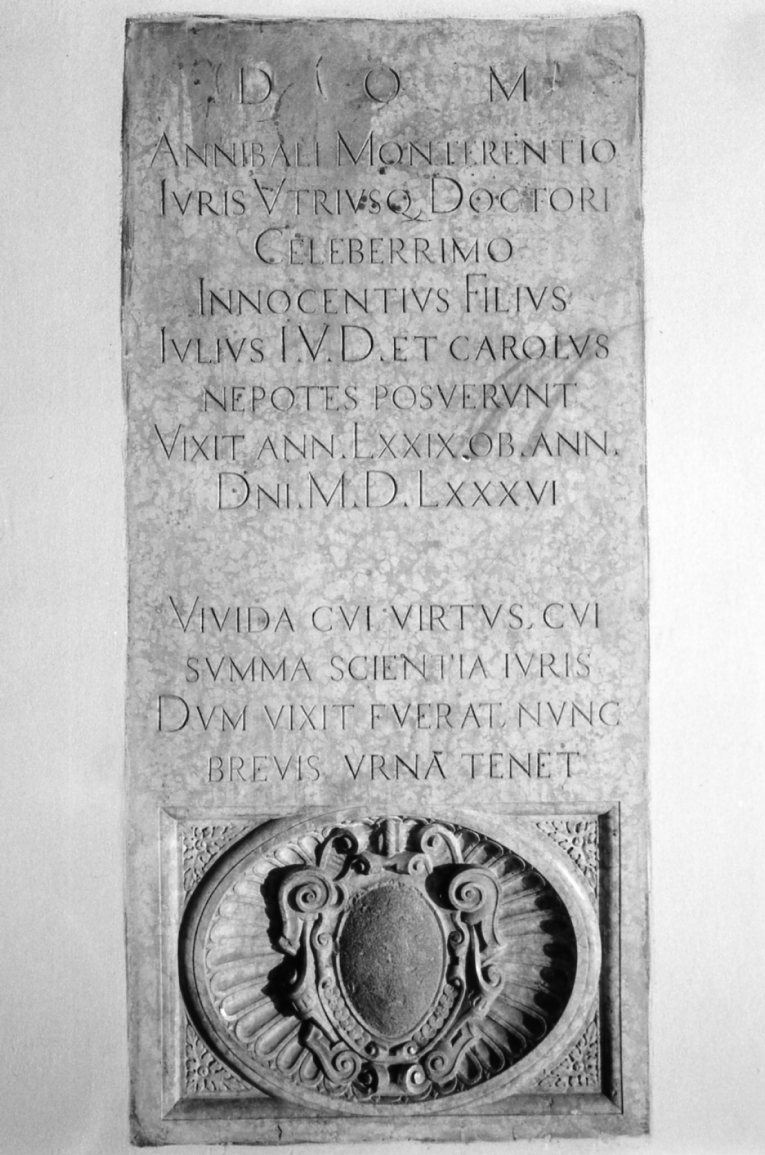 D O M
ANNIBALI MONTERENTIO
IVRIS VTRIVSQ. DOCTORI
CELEBERRIMO
INNOCENTIVS FILIVS
IVLIVS I.V.D. ET CAROLVS
NEPOTES POSVERVNT
VIXIT ANN. LXXIX. OB. ANN.
DNI. M.D.LXXXVI
VIVIDA CVI VIRTVS, CVI
SVMMA SCIENTIA IVRIS
DVM VIXIT FVERAT, NVNC
BREVIS VRNĀ TENET